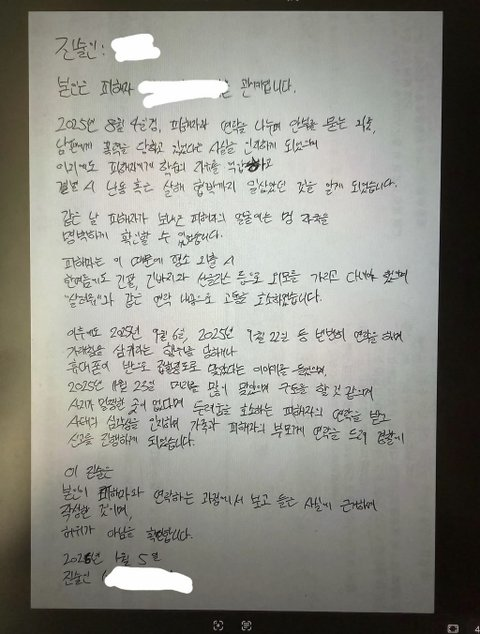 진술인:
본인은 피해자 관계입니다.
2025년 8월 4일경, 피해자와 연락을 나누며 안부를 묻는 과정,
남편에게 폭력을 당하고 있었다는 사실을 인지하게 되었으며
이외에도 피해자에게 학습적
결별 시 난동 혹은 살해 협박까지 일삼았던 것을 알게 되었습니다.
같은 날 피해자가 보내온 피해자의 얼굴에는 멍 자국을
명백하게 확인할 수 있었습니다.
피해자는 이 때문에 평소 외출 시
한여름에도 긴팔, 긴바지와 선글라스 등으로 외모를 가리고 다녀야 했으며
"살려줘"와 같은 연락 내용으로 고통을 호소하였습니다.
이후에도 2025년 9월 6일, 2025년 9월 22일 등 빈번히 연락을 하며
가래침을 삼키라는 협박을 당하거나
휴대폰이 반으로 접힐정도로 맞았다는 이야기를 들었으며,
2025년 11월 23일 머리를 많이 맞았으며 구토를 할 것 같으며
사지가 멀쩡한 곳이 없다며 두려움을 호소하는 피해자의 연락을 받고
사태의 심각성을 인지하여 가족과 피해자의 부모께 연락을 드려 경찰에
신고를 진행하게 되었습니다.
이 진술은
본인이 피해자와 연락하는 과정에서 보고 들은 사실에 근거하여
작성한 것이며,
허위가 아님을 확인합니다.
2026년 1월 5일
진술인